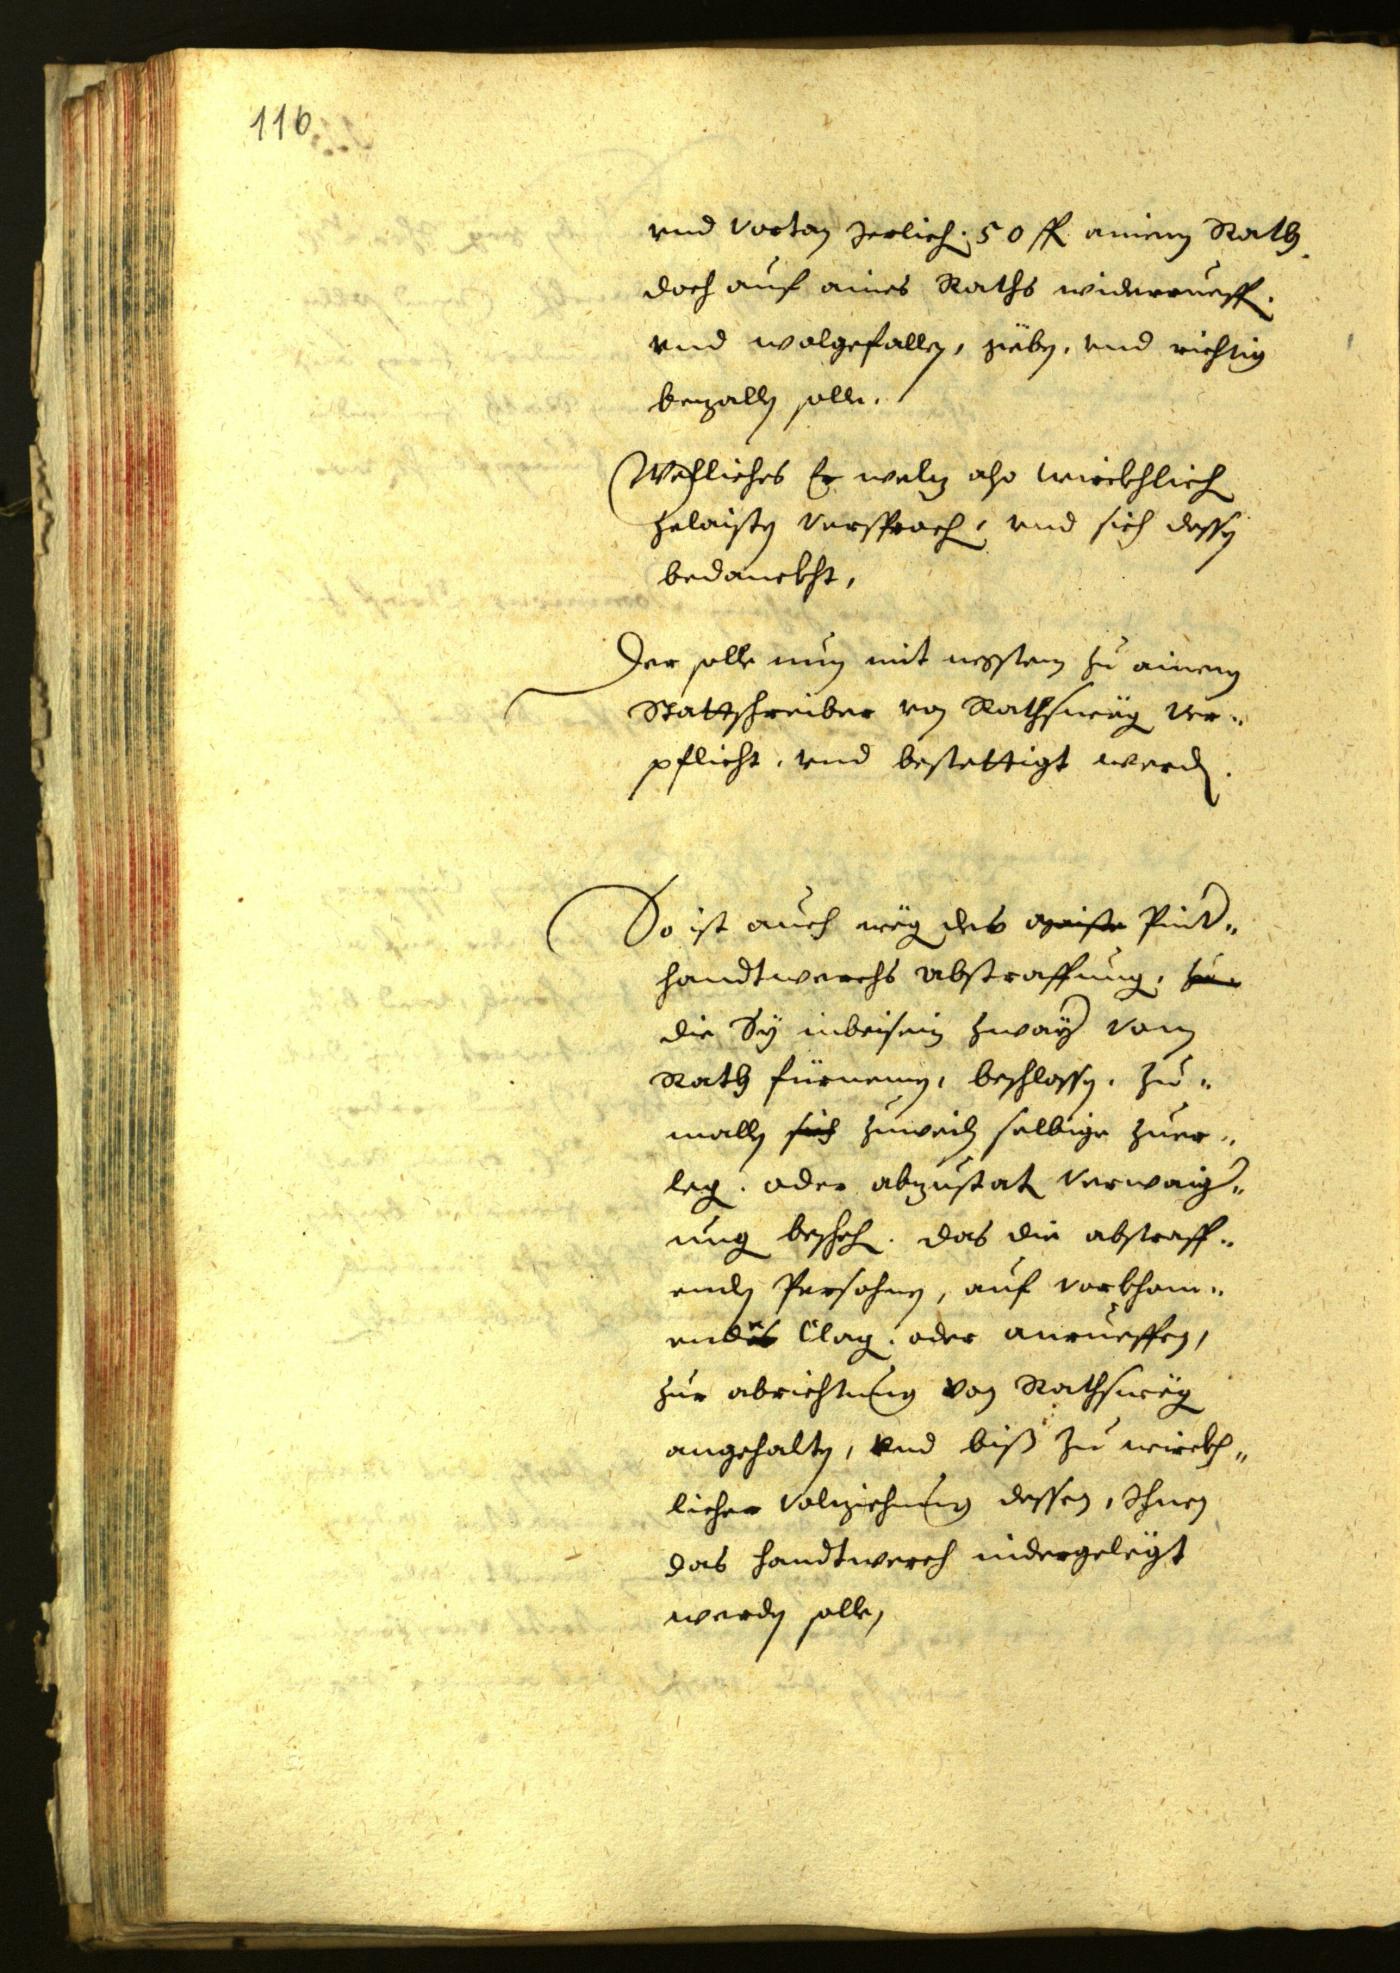 116
vnd vortan Jerlich. 50 fl ainem Rath
doch auf aines Raths widerrueff.
vnd wolgefallen, geben, vnd richtig
bezallen solle.
Wehliches Er weln also wirckhlich
zelaisten versprach, vnd sich dessen
bedanckht,
Der solle nun mit negstem zu ainem
Stattschreiber von Rathsweg ver„
pflicht, vnd bestettigt werden.
So ist auch weg des Pint„
handtwerchs abstraffung,
die Sÿ inbeisein zwaÿ vom
Rath fürnemen, beschlossen. Zu„
mallen sich zuweiln selbige zuer„
leg. oder abzustat verwaiger„
ung bescheh. das die abstraff„
enden Persohnen, auf vorkhom„
endes Clag. oder anrueffen,
zur abrichtung von Rathsweg
angehalten, vnd biß zu wirckh„
licher volziehung dessen, Ihnen
das handtwerch nidergelegt
werden solle,